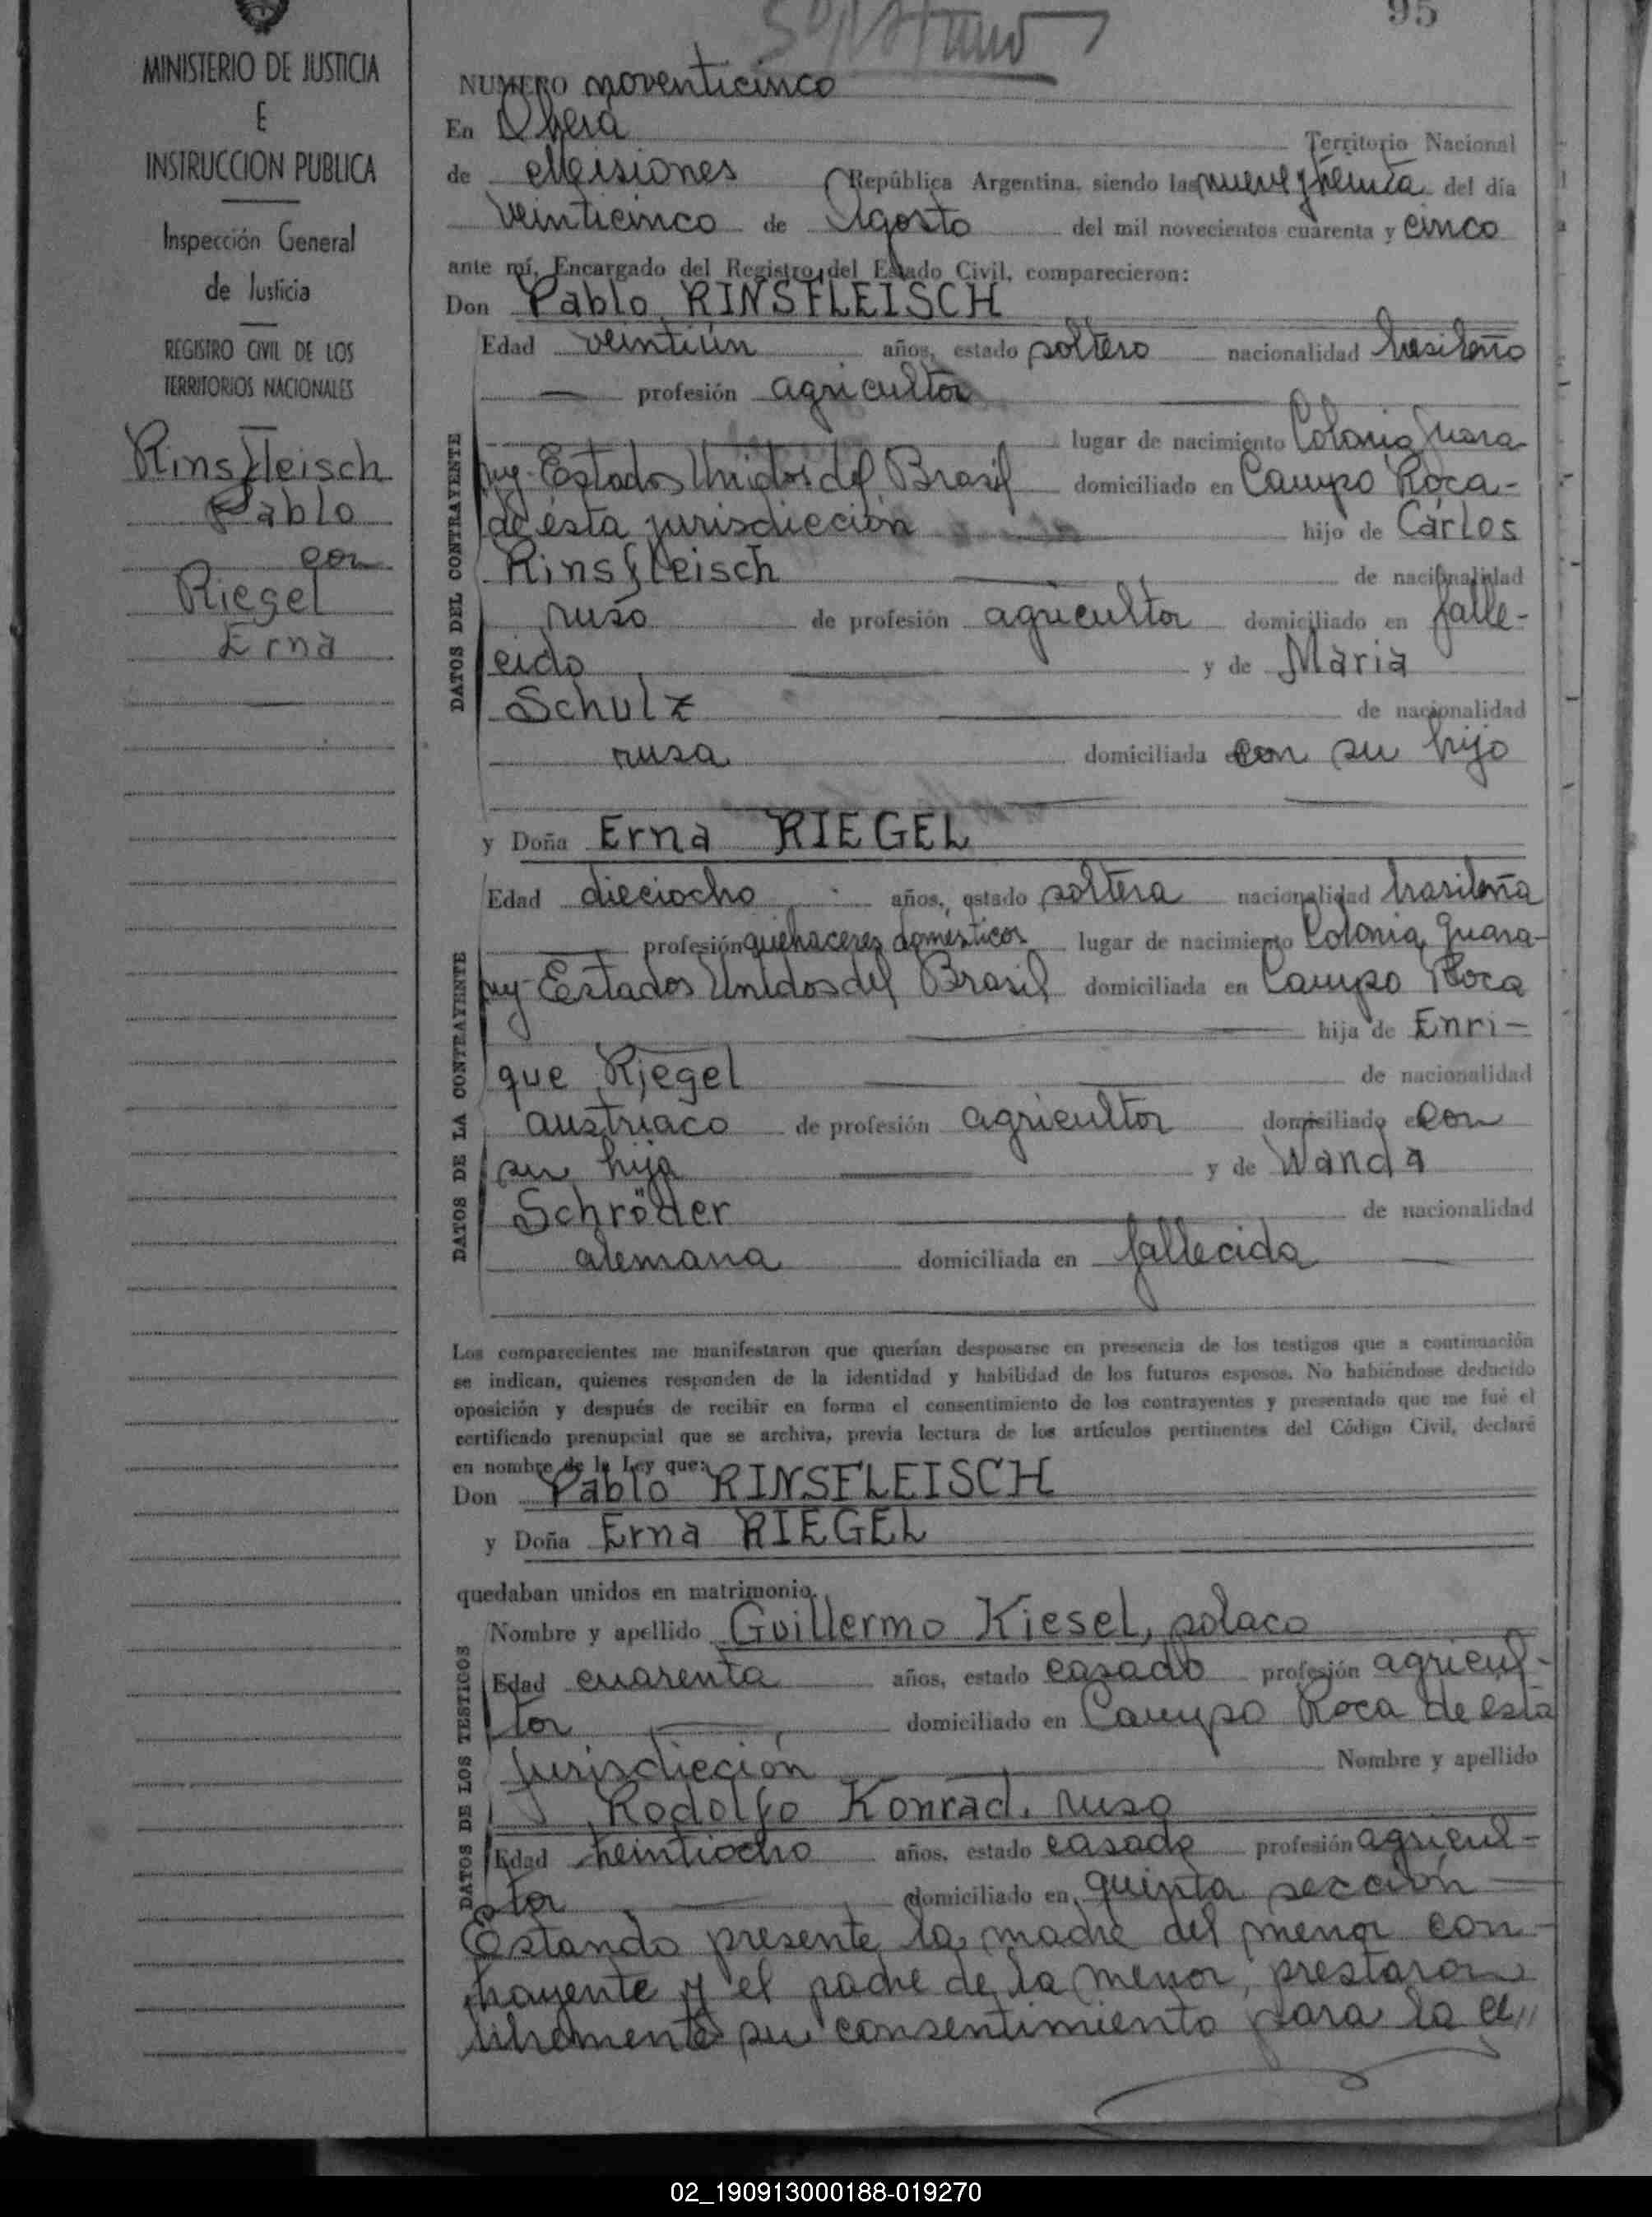 95
MINISTERIO DE JUSTICIA
E
INSTRUCCION PUBLICA
Inspección General
de Justicia
REGISTRO CIVIL DE LOS
TERRITORIOS NACIONALES
Rinsfleisch
Pablo
con
Riegel
Erna
NUMERO noventicinco
En Oberá Territorio Nacional
de Misiones República Argentina, siendo las nueve y treinta del día
veinticinco de Agosto del mil novecientos cuarenta y cinco
ante mí, Encargado del Registro del Estado Civil, comparecieron:
Don Pablo RINSFLEISCH
DATOS DEL CONTRAYENTE
Edad veintiún años, estado soltero nacionalidad brasileño
profesión agricultor
lugar de nacimiento Colonia Juara
ny-Estados Unidos del Brasil domiciliado en Campo Roca-
de ésta jurisdicción hijo de Cárlos
Rinsfleisch de nacionalidad
ruso de profesión agricultor domiciliado en falle-
cido y de Maria
Schulz de nacionalidad
rusa domiciliada con su hijo
y Doña Erna RIEGEL
DATOS DE LA CONTRAYENTE
Edad dieciocho años, estado soltera nacionalidad brasileña
profesión quehaceres domésticos lugar de nacimiento Colonia Guara-
ny-Estados Unidos del Brasil domiciliada en Campo Roca
hija de Enri-
que Riegel de nacionalidad
austriaco de profesión agricultor domiciliado con
su hija y de Wanda
Schröder de nacionalidad
alemana domiciliada en fallecida
Los comparecientes me manifestaron que querían desposarse en presencia de los testigos que a continuación
se indican, quienes responden de la identidad y habilidad de los futuros esposos. No habiéndose deducido
oposición y después de recibir en forma el consentimiento de los contrayentes y presentado que me fué el
certificado prenupcial que se archiva, previa lectura de los artículos pertinentes del Código Civil, declaré
en nombre de la Ley que:
Don Pablo RINSFLEISCH
y Doña Erna RIEGEL
quedaban unidos en matrimonio.
DATOS DE LOS TESTIGOS
Nombre y apellido Guillermo Kiesel, polaco
Edad cuarenta años, estado casado profesión agricul-
tor domiciliado en Campo Roca de esta
jurisdicción Nombre y apellido
Rodolfo Konrad, ruso
Edad treintiocho años, estado casado profesión agricul-
tor domiciliado en quinta sección
Estando presente la madre del menor con-
trayente y el padre de la menor, prestaron
libremente su consentimiento para la ce//
02_190913000188-019270